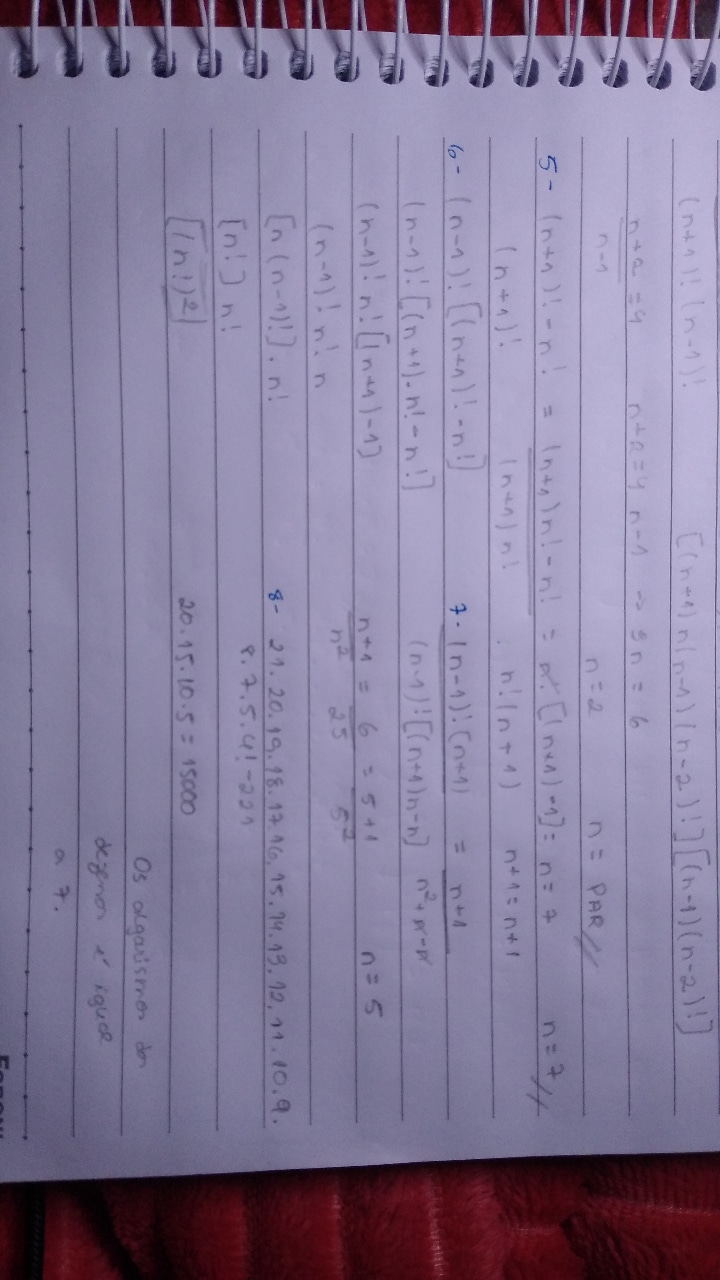 (n+1)! (n-1)! [(n+1) n(n-1) (n-2)!] [(n-1) (n-2)!]
n+2 = 4 n+2 = 4 n-1 → 3n = 6
n-1 n=2 n = PAR //
5- (n+1)! - n! = (n+1) n! - n! = n! [(n+1) -1] = n = 7 n = 7 //
(n+1)! (n+1) n! n! (n+1) n+1 = n+1
6- (n-1)! [(n+1)! - n!]
(n-1)! [(n+1) . n! - n!]
(n-1)! n! [(n+1) - 1]
(n-1)! n! n
[n (n-1)!] . n!
[n!] n!
[(n!)²]
7- (n-1)! (n+1) = n+1
(n-1)! [(n+1) n - n] n² + n - n
n+1 = 6 = 5+1 n = 5
n² 25 5²
8- 21. 20. 19. 18. 17. 16. 15. 14. 13. 12. 11. 10. 9.
8. 7. 5. 4! - 221
20. 15. 10. 5 = 15000
Os algarismos das
dezenas é igual
a 7.